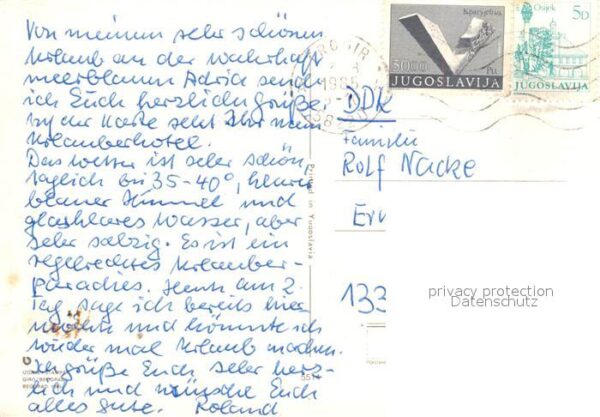 Von meinem sehr schönen
Urlaub an der wahrhaft
meerblauen Adria sende
ich Euch herzliche Grüße.
Auf der Karte seht Ihr mein
Urlauberhotel.
Das Wetter ist sehr schön,
täglich bis 35-40°,
blauer Himmel und
glasklares Wasser, aber
sehr salzig. Es ist ein
regelrechtes Urlauber-
paradies. Heute am 2.
Tag, sage ich bereits hier
möchte und könnte ich
wieder mal Urlaub machen.
Ich grüße Euch sehr herz-
lich und wünsche Euch
alles Gute. Roland
Printed in Yugoslavia
5514
Крагујевац
5000
JUGOSLAVIJA
Osijek
5D
JUGOSLAVIJA
1985
DDR
Familie
Rolf Nacke
133
privacy protection
Datenschutz